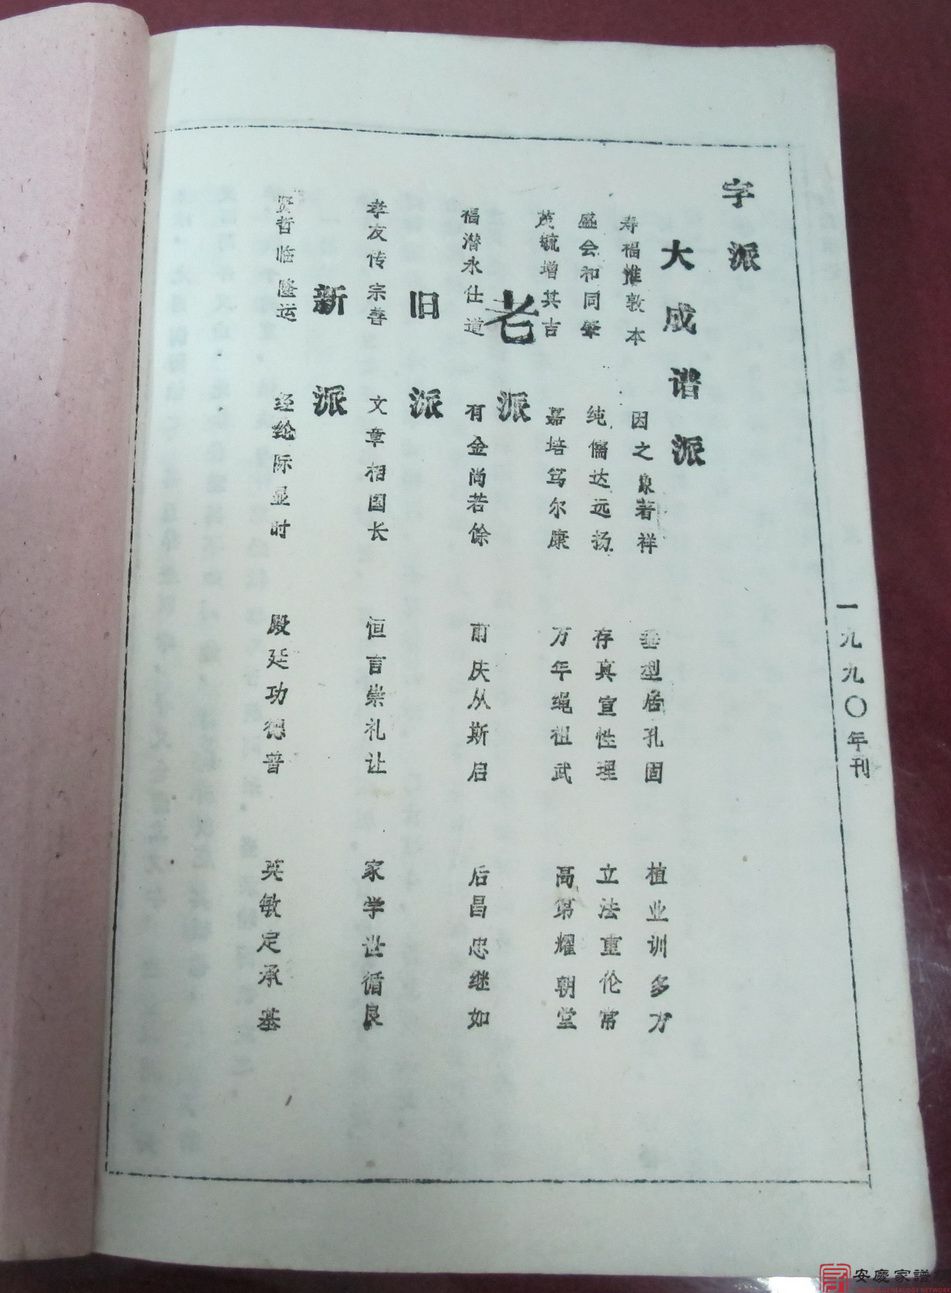 一九九〇年刊
字派
大成谱派
寿福惟敦本 因之象著祥 垂型居孔固 植业训多方
盛会和同肇 纯儒达远扬 存真宣性理 立法重伦常
茂毓增其吉 嘉培笃尔康 万年绳祖武 高第耀朝堂
老派
福潜永仕道 有金尚若馀 甫庆从斯启 后昌忠继如
旧派
孝友传宗善 文章相国长 恒言崇礼让 家学世循良
新派
贤哲临隆运 经纶际显时 殿廷功德普 英敏定承基
安慶家譜